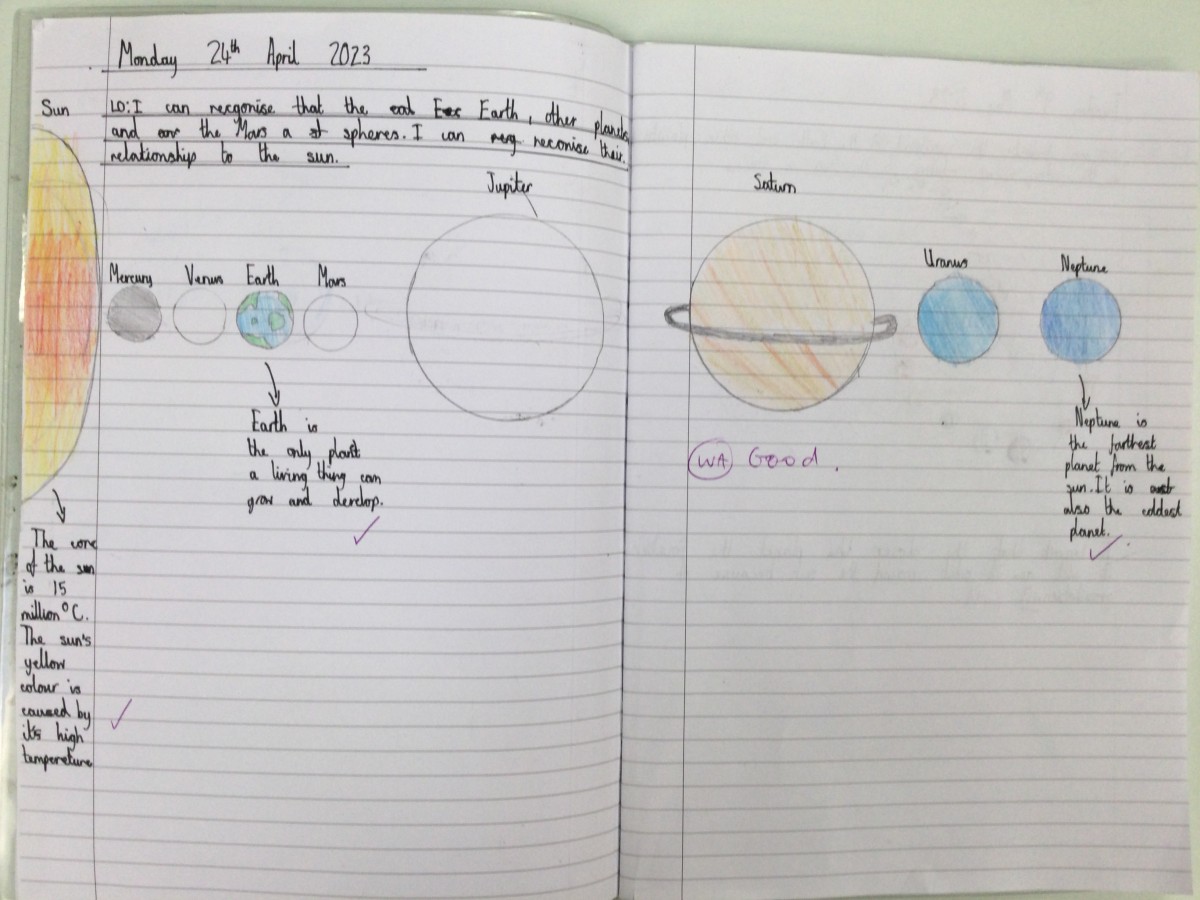 Monday 24th April 2023
Sun
LO: I can recgonise that the Earth, other planets
and the Mars a spheres. I can reconise their
relationship to the sun.
Jupiter
Saturn
Mercury Venus Earth Mars
Uranus
Neptune
Earth is
the only plant
a living thing can
grow and develop.
The core
of the sun
is 15
million °C.
The sun's
yellow
colour is
caused by
it's high
temperature
WA Good.
Neptune is
the farthest
planet from the
sun. It is
also the coldest
planet.